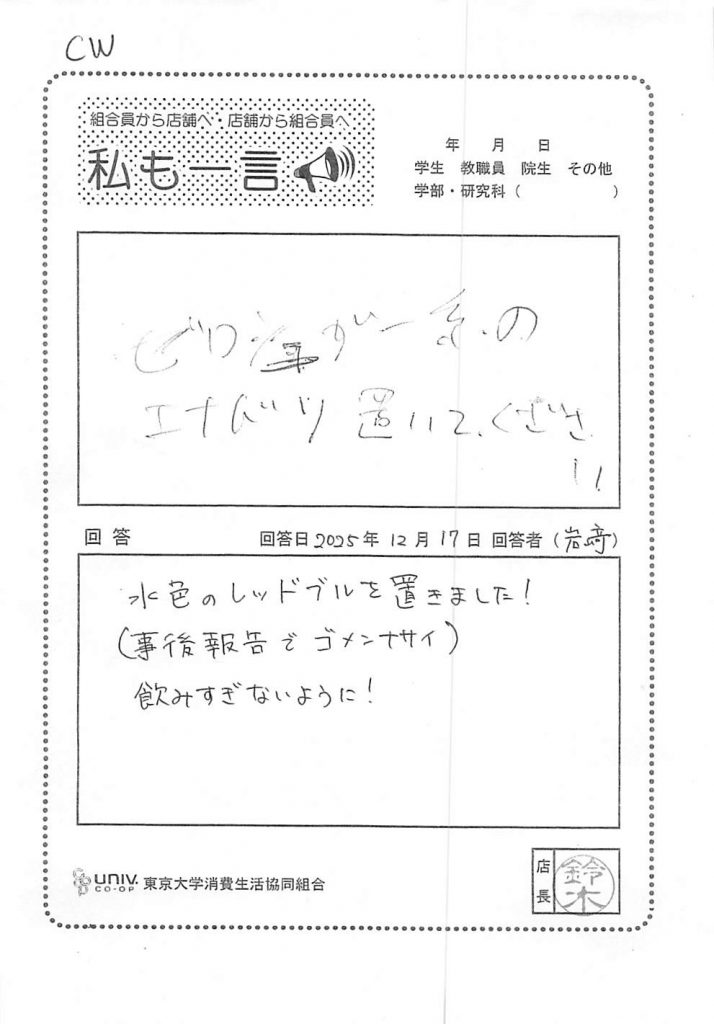 CW
組合員から店舗へ・店舗から組合員へ
私も一言
年 月 日
学生 教職員 院生 その他
学部・研究科( )
の
エナドリ 置いてください
!!
回答 回答日2025年12月17日 回答者(岩﨑)
水色のレッドブルを置きました!
(事後報告でゴメンナサイ)
飲みすぎないように!
UNIV. CO-OP 東京大学消費生活協同組合
店長 鈴木